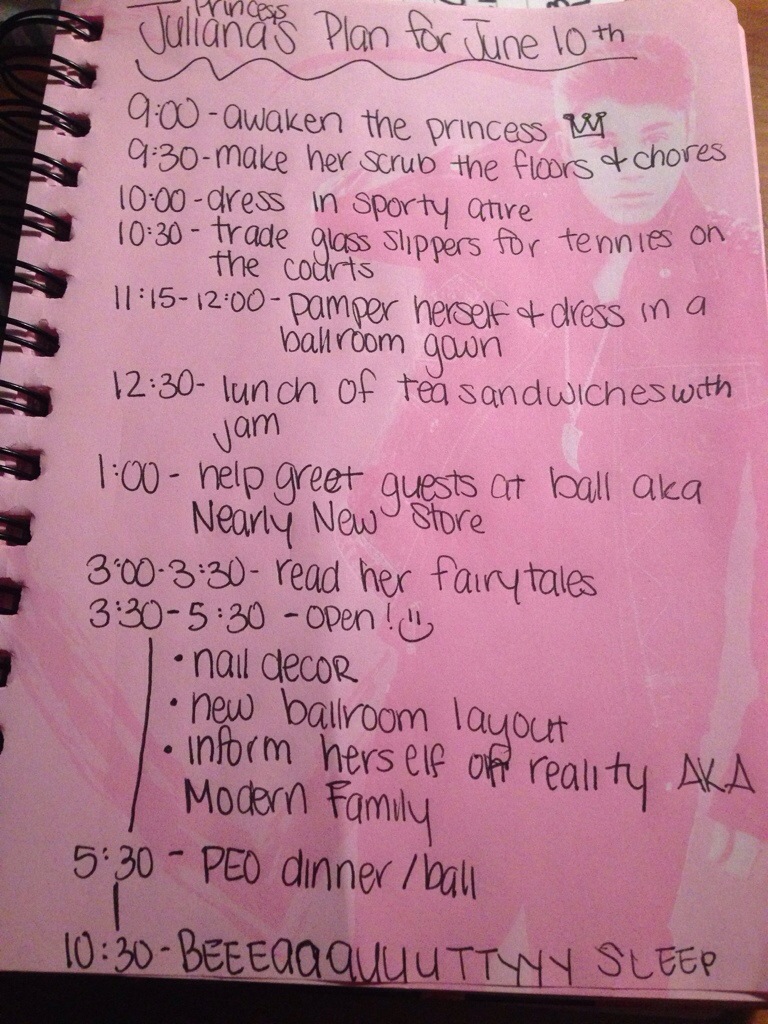 Princess
Juliana's Plan for June 10th
9:00 - awaken the princess
9:30 - make her scrub the floors + chores
10:00 - dress in sporty atire
10:30 - trade glass slippers for tennies on
the courts
11:15-12:00 - pamper herself + dress in a
ballroom gown
12:30 - lunch of tea sandwiches with
jam
1:00 - help greet guests at ball aka
Nearly New Store
3:00-3:30 - read her fairytales
3:30-5:30 - open! :)
• nail decor
• new ballroom layout
• inform herself of reality AKA
Modern Family
5:30 - PEO dinner/ball
10:30 - BEEEaaauuuTTyyy SLEEP